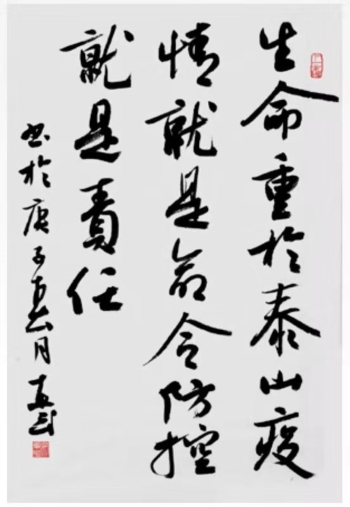 生命重於泰山疫
情就是命令防控
就是責任
書於庚子年正月